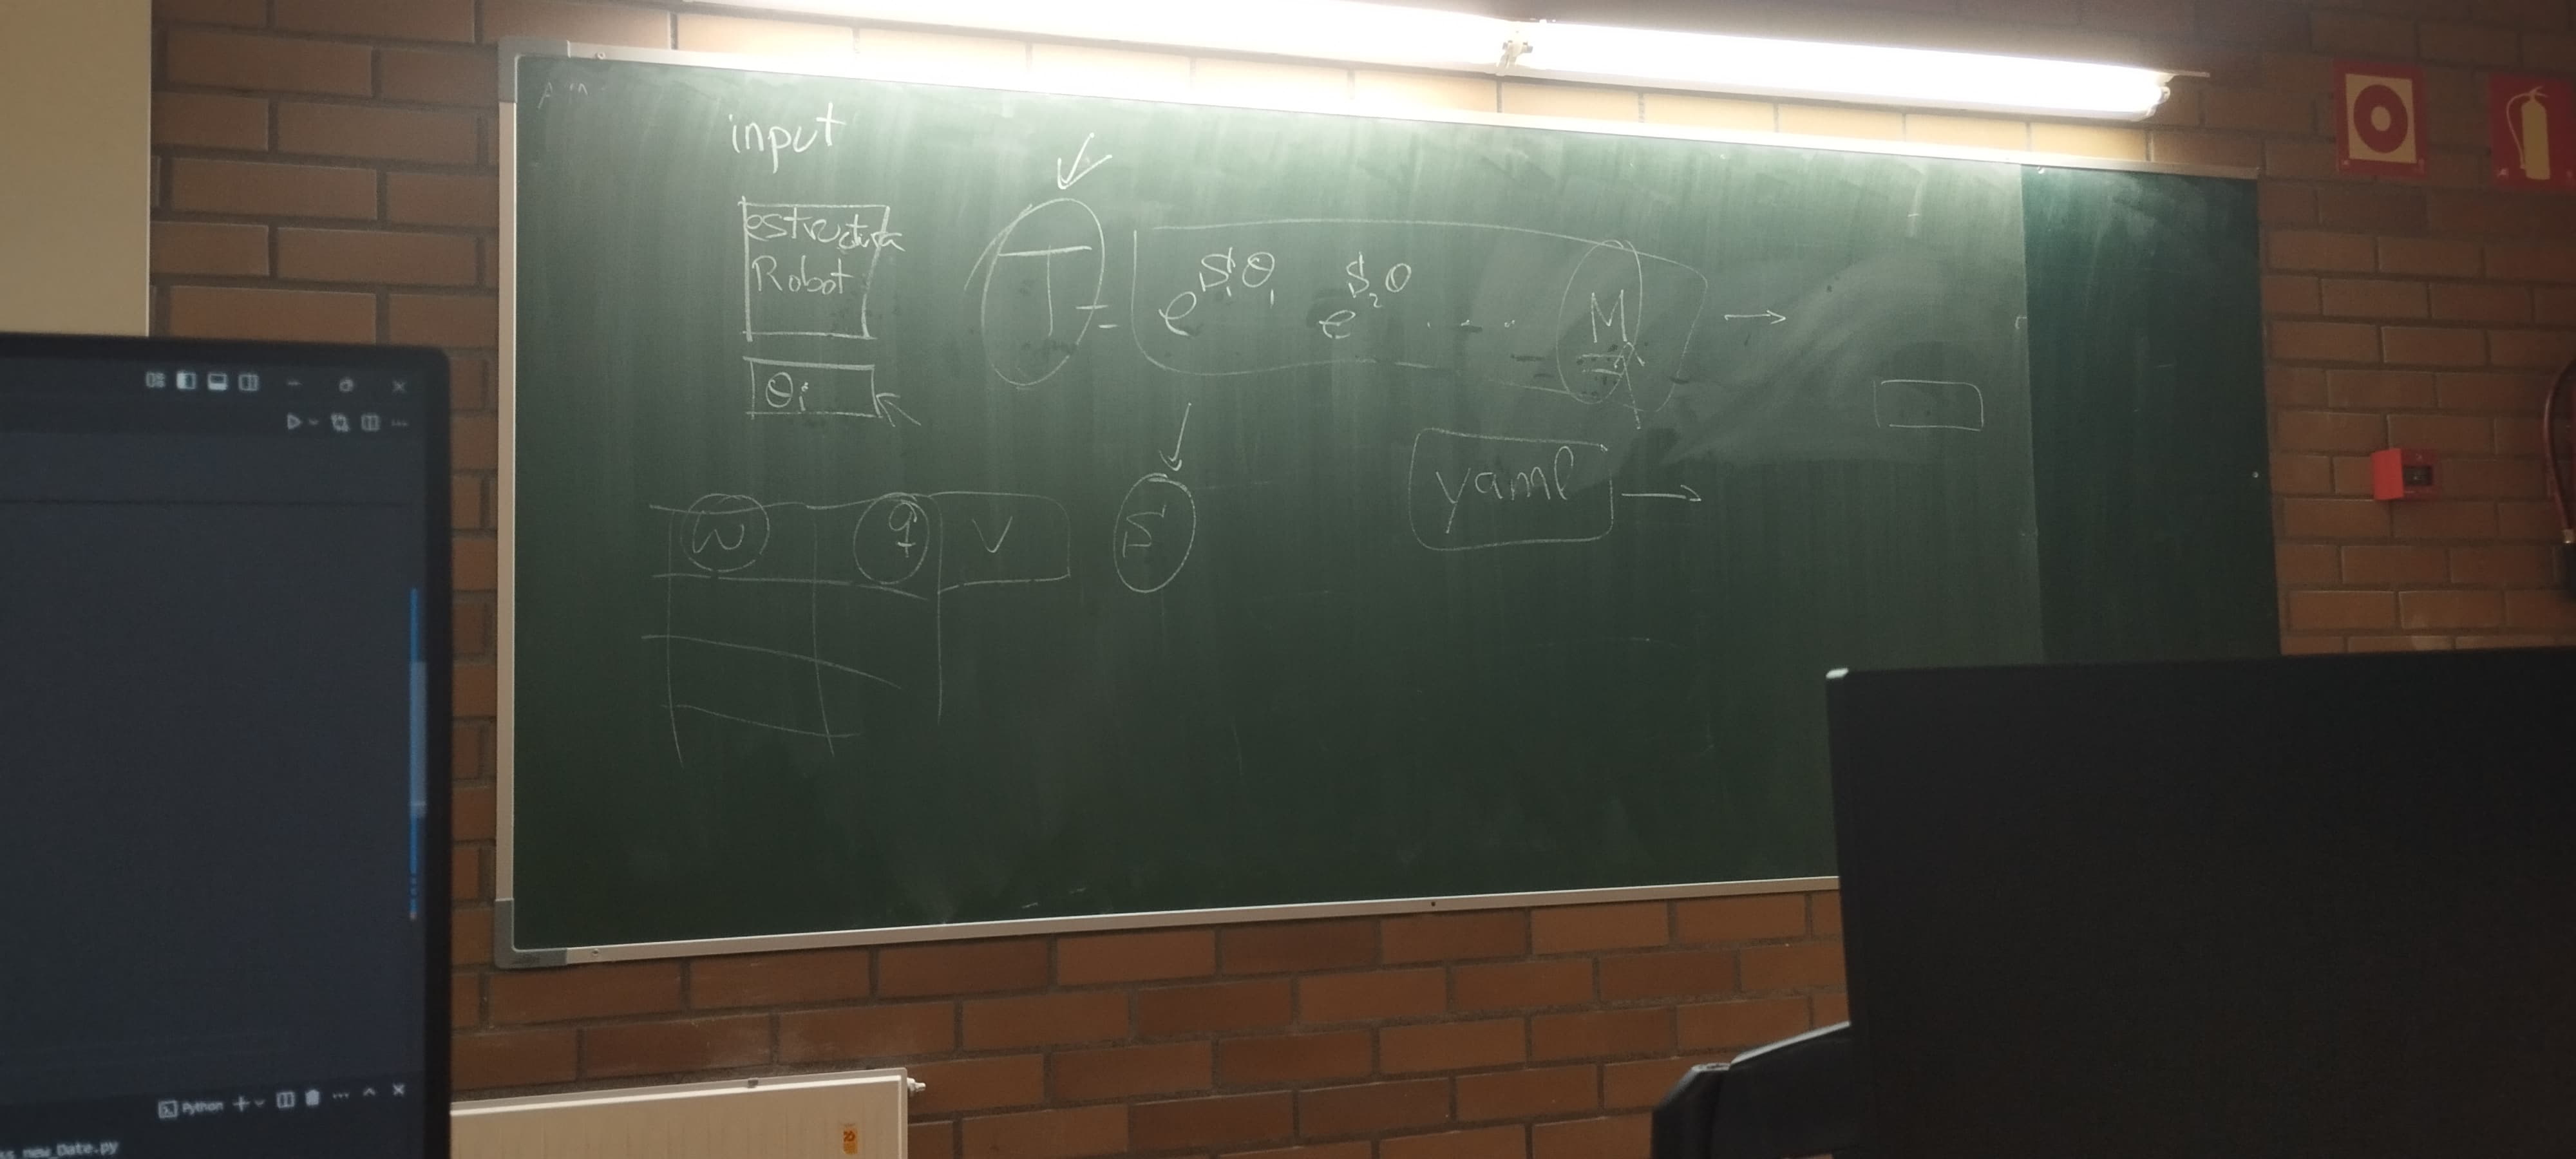 input
estructura
Robot
θi
T = e^S₁θ₁ e^S₂θ .... M →
w q v S
yaml →
Python
new_Date.py